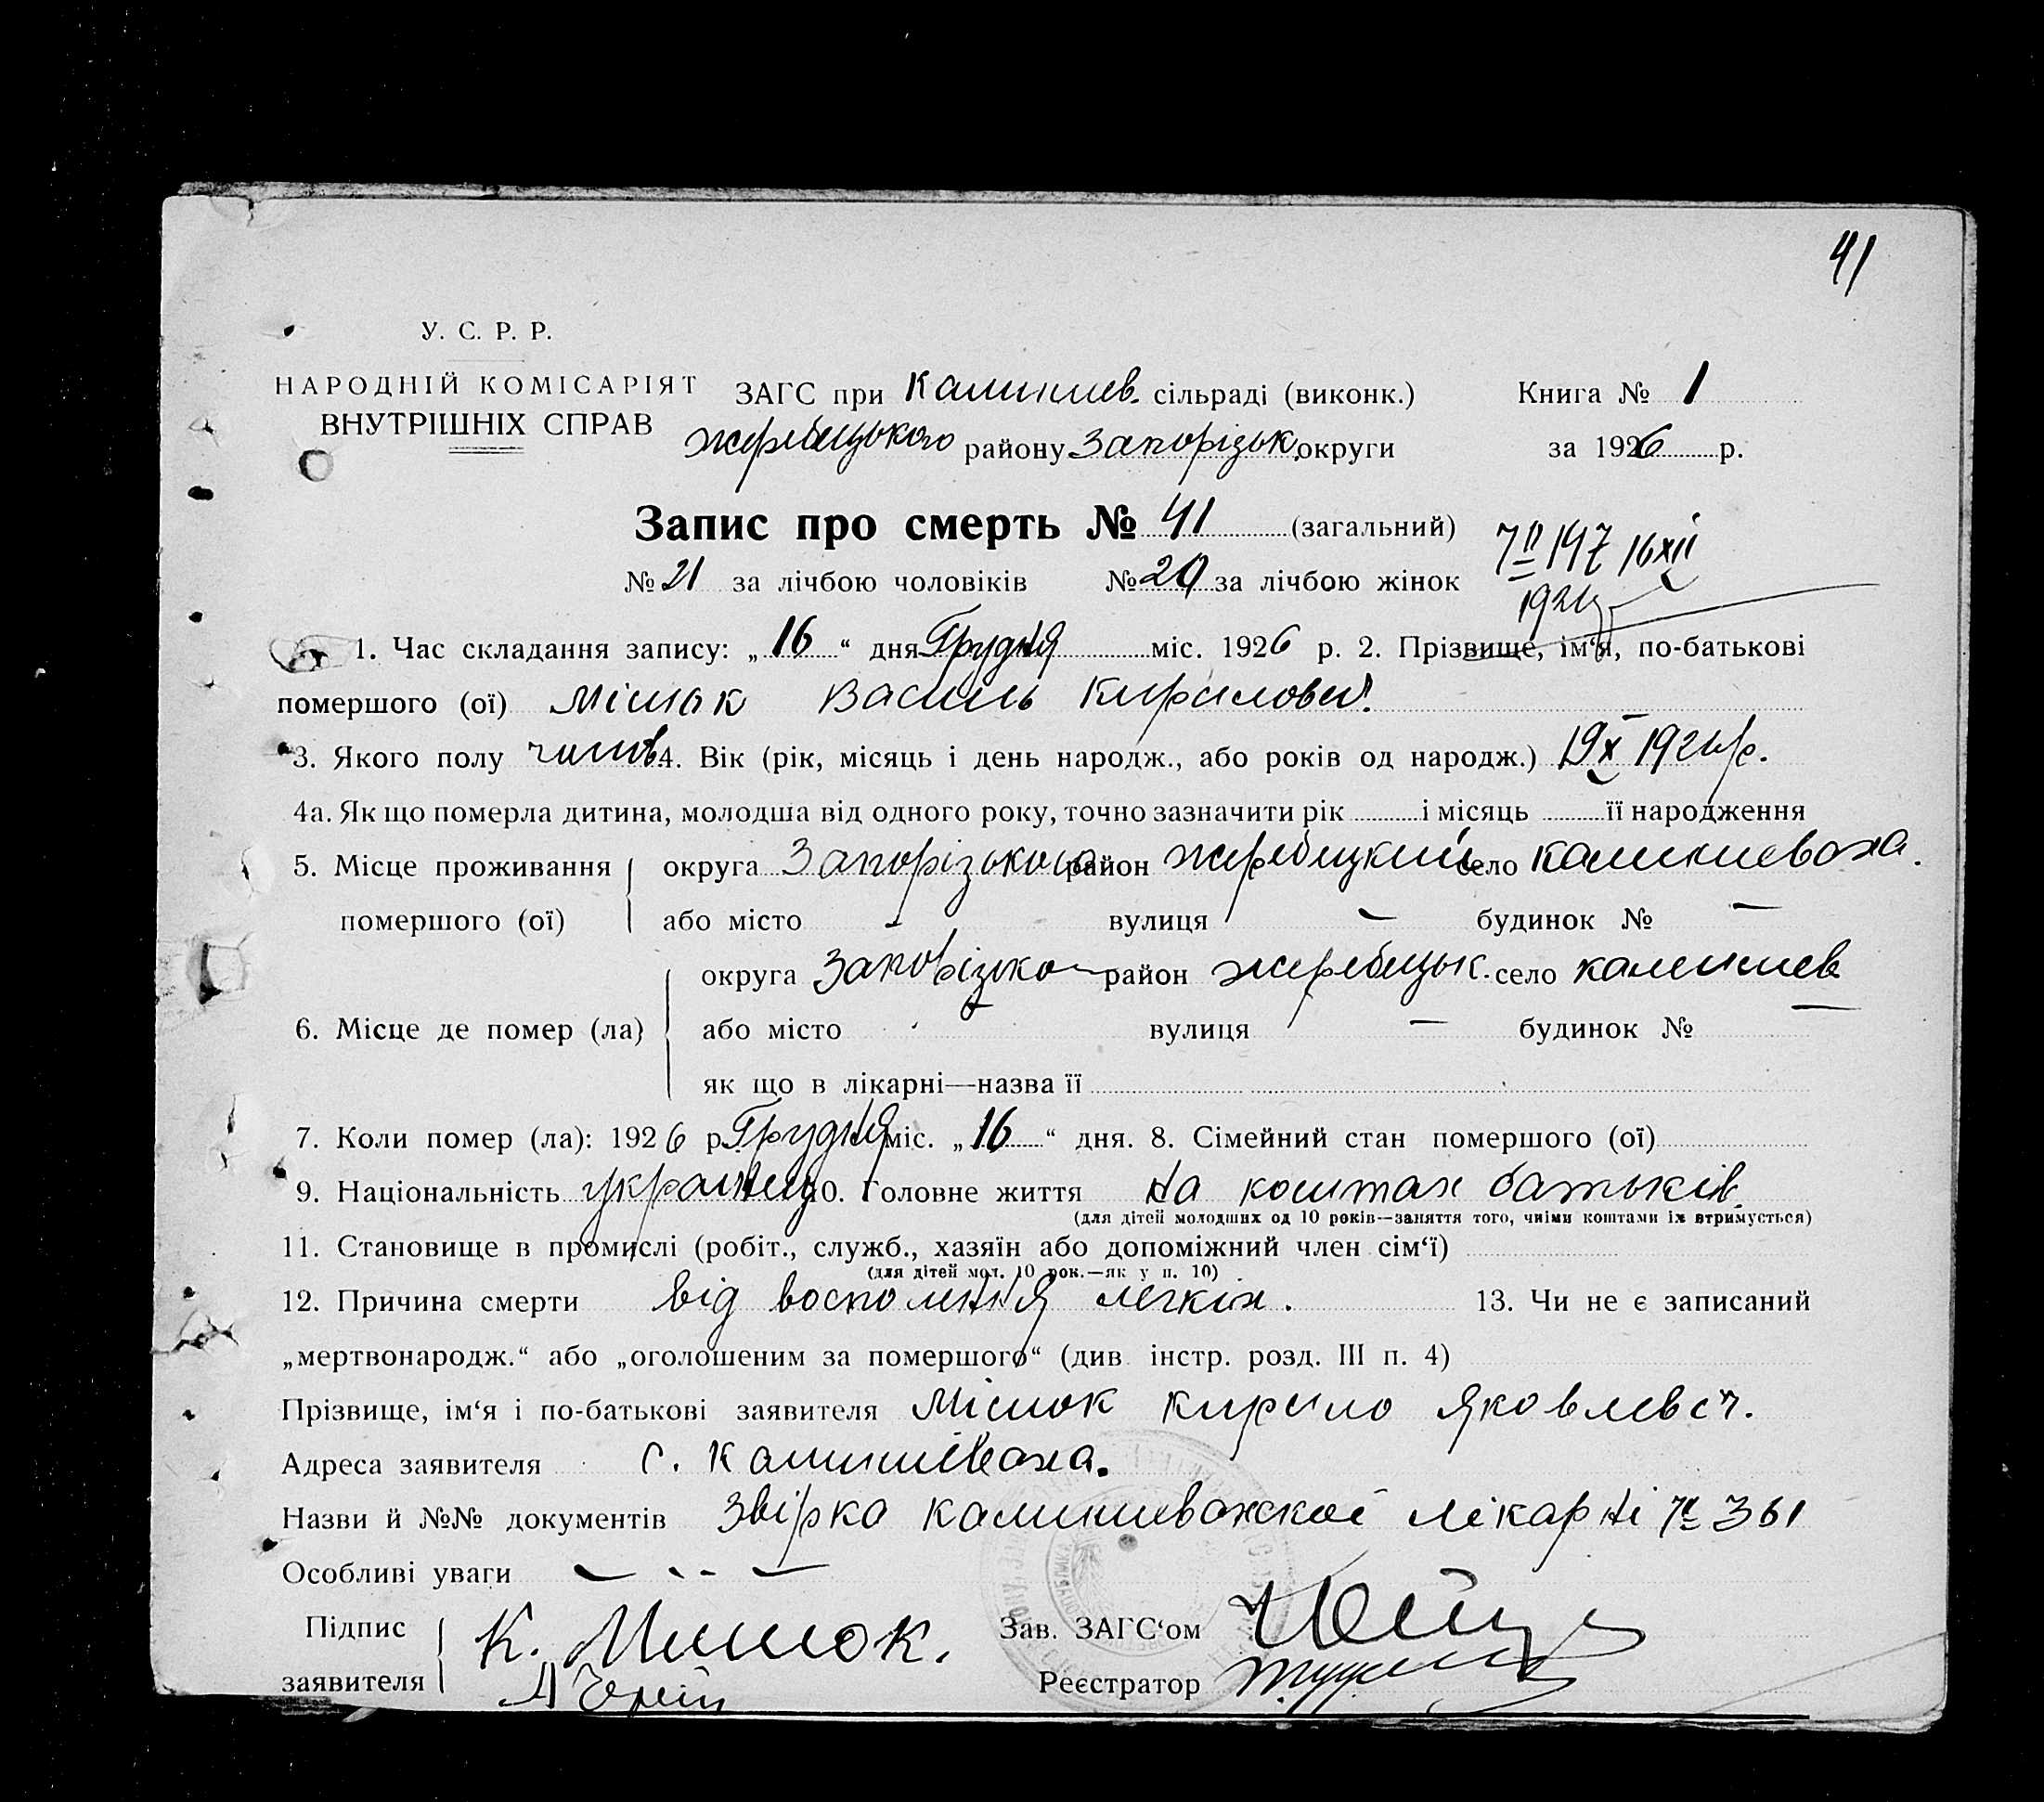 41
У. С. Р. Р.
НАРОДНІЙ КОМІСАРІЯТ
ВНУТРІШНІХ СПРАВ
ЗАГС при Калинiев. сільраді (виконк.) Книга № 1
жеребецького району Запорізьк. округи за 1926 р.
Запис про смерть № 41 (загальний)
№ 21 за лічбою чоловіків № 20 за лічбою жінок
№ 147 16 XII
1926р
1. Час складання запису: „ 16 “ дня Грудня міс. 1926 р. 2. Прізвище, ім‘я, по-батькові
помершого (ої) Мішок Василь Кирилович.
3. Якого полу 4. Вік (рік, місяць і день народж., або років од народж.) 19 X 1926р.
4а. Як що померла дитина, молодша від одного року, точно зазначити рік і місяць її народження
5. Місце проживання помершого (ої) округа Запорізького район жеребецкий село
або місто - вулиця — будинок № —
6. Місце де помер (ла) округа Запорізько район жеребецьк. село
або місто вулиця — будинок № —
як що в лікарні—назва її
7. Коли помер (ла): 1926 р. Грудня міс. „ 16 “ дня. 8. Сімейний стан помершого (ої)
9. Національність українец 10. Головне життя На коштах батьків
(для дітей молодших од 10 років—заняття того, чиїми коштами їх втримується)
11. Становище в промислі (робіт., служб., хазяїн або допоміжний член сім‘ї)
(для дітей мол. 10 рок.—як у п. 10)
12. Причина смерти від воспоління легкіх. 13. Чи не є записаний
„мертвонародж.“ або „оголошеним за помершого“ (див. інстр. розд. III п. 4)
Прізвище, ім‘я і по-батькові заявителя Мішок Кирило Яковлевіч.
Адреса заявителя с.
Назви й №№ документів лікарні № 361
Особливі уваги — - - —
Підпис заявителя К. Мишок.
Зав. ЗАГС‘ом
Реєстратор